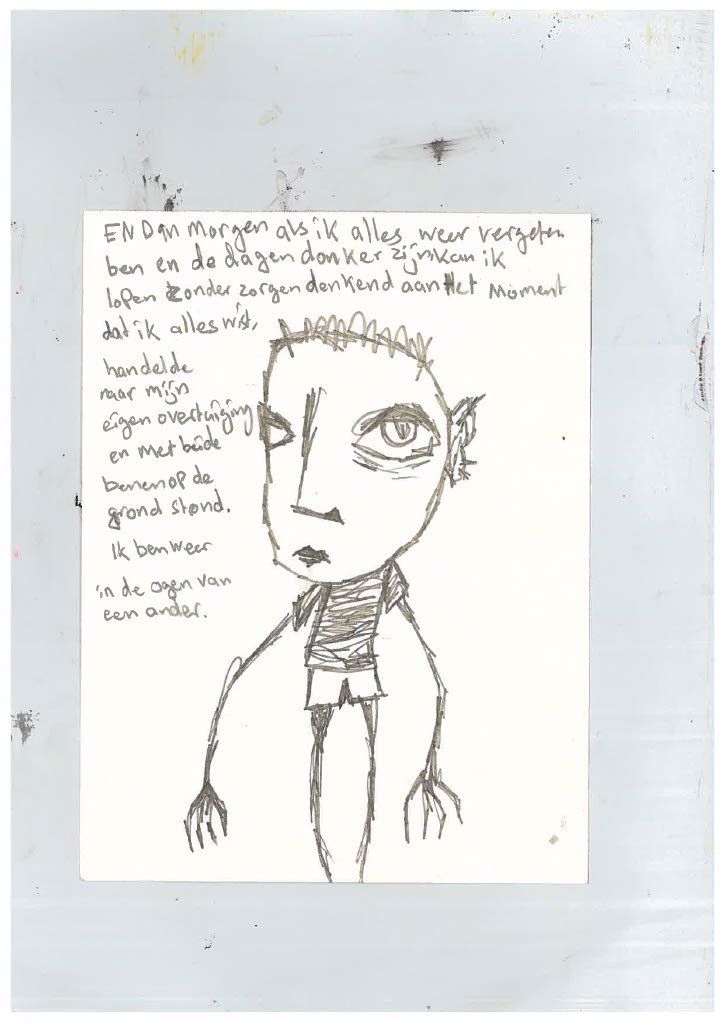 EN Dan Morgen als ik alles weer vergeten
ben en de dagen donker zijn kan ik
lopen zonder zorgen denkend aan Het Moment
dat ik alles wist,
handelde
naar mijn
eigen overtuiging
en met beide
benen op de
grond stond.
Ik ben weer
in de ogen van
een ander.